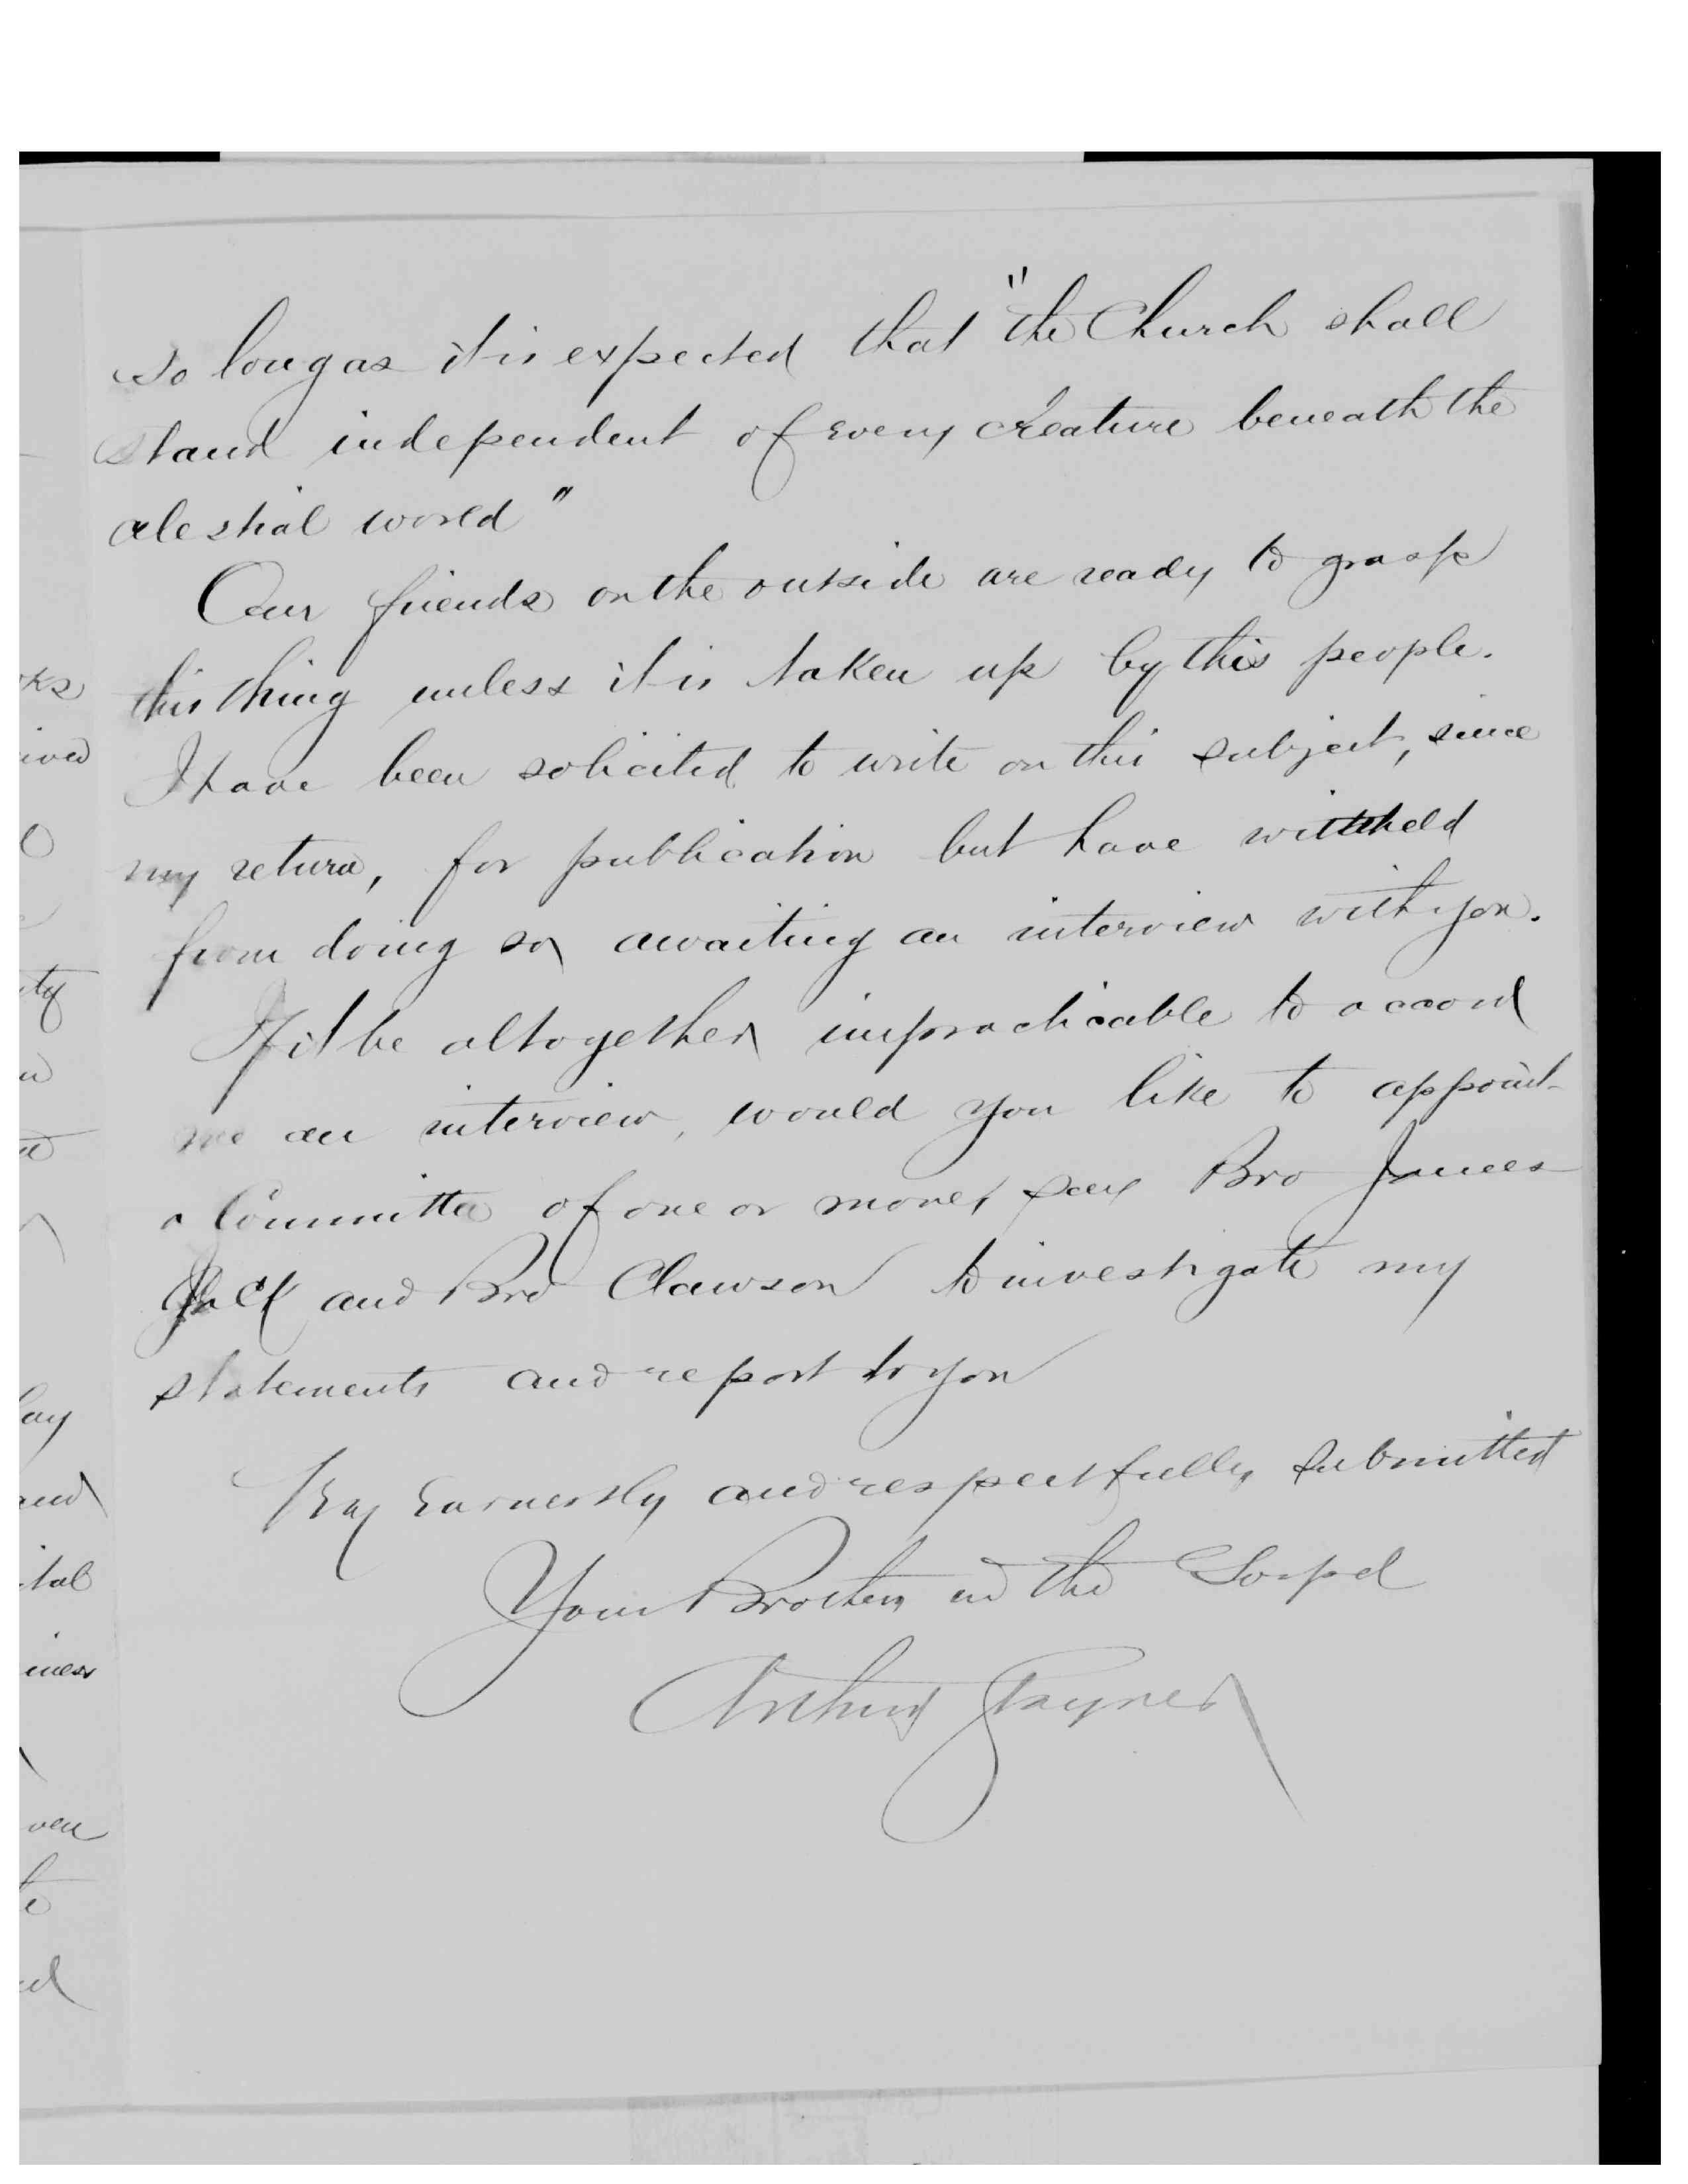 so long as it is expected that "the Church shall
stand independent of every creature beneath the
celestial world"
Our friends on the outside are ready to grasp
this thing unless it is taken up by this people.
I have been solicited to write on this subject, since
my return, for publication but have withheld
from doing so awaiting an interview with you.
If it be altogether impracticable to accord
me an interview, would you like to appoint
a Committee of one or more, say Bro James
Jack and Bro Clawson to investigate my
statements and report to you
Very Earnestly and respectfully submitted
Your Brother in the Gospel
Arthur Stayner